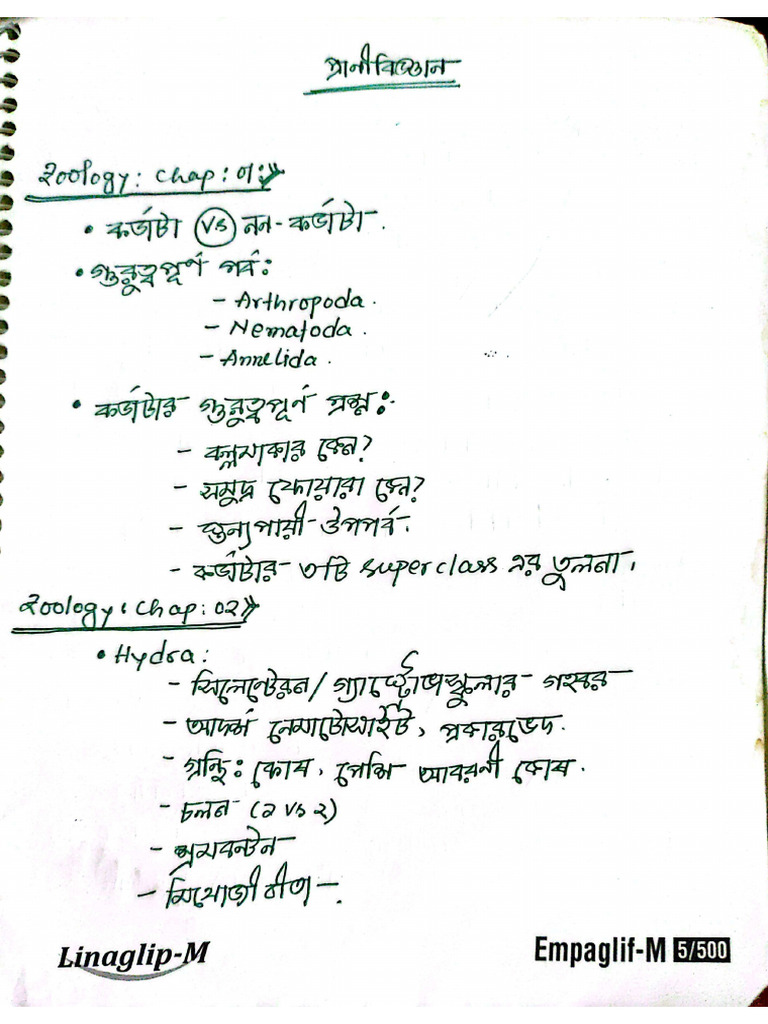 প্রানীবিজ্ঞান
Zoology: Chap: 01:
• কর্ডাটা VS নন-কর্ডাটা.
• গুরুত্বপূর্ণ পর্ব:
- Arthropoda.
- Nematoda.
- Annelida.
• কর্ডাটার গুরুত্বপূর্ণ প্রশ্ন:
- কেন?
- সমুদ্র ফোয়ারা কেন?
- স্তন্যপায়ী উপপর্ব.
- কর্ডাটার ৩টি superclass এর তুলনা.
Zoology: Chap: 02
• Hydra:
- সিলেন্টেরন/ গহ্বর
- আদর্শ নেমাটোসাইট, প্রকারভেদ.
- গ্রন্থি: কোষ, পেশি আবরনী কোষ.
- চলন (১ vs ২)
- শ্রমবন্টন
- মিথোজীবীতা.
Linaglip-M
Empaglif-M 5/500